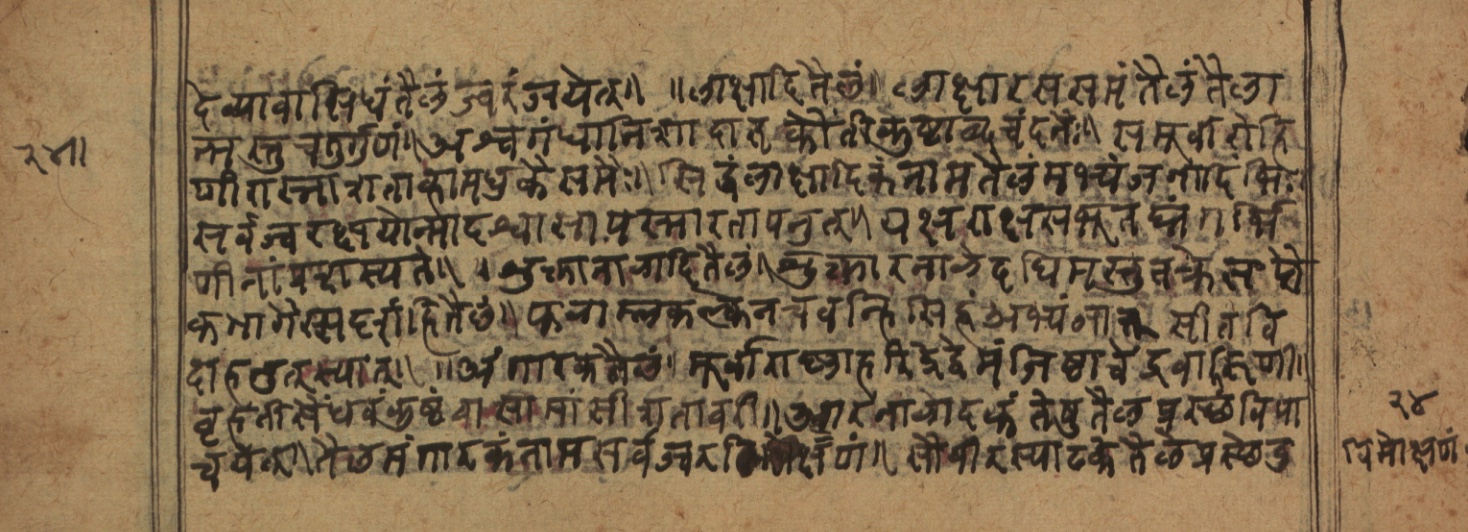 देव्यावासिघंतैलंज्वरंजयेत्॥ ॥लाक्षादितैलं॥ लाक्षारससमंतैलंतैला
न्मस्तुचतुर्गुणं॥अश्वगंधानिशादारुकौंतीकुष्ठाब्दचंदनैः॥ समूर्वारोहि
णीरास्नाशताह्वामधुकैसमैः॥ सिद्धंलाक्षादिकंनामतैलंमभ्यंजनादिभिः॥
सर्वज्वरक्षयोन्मादश्वासापस्मारतापनुत्॥ यक्षराक्षसभूतघ्नंगर्भि
णीनांप्रशस्यते॥ ॥शुक्तारनालादितैलं॥शुक्तारनालेदधिमस्तुतक्रे
कभागैस्स तैलं॥ फलाम्लकल्केन अभ्यंगात् सीतवि
दाहनुत्स्यात्॥ ॥अंगारकतैलं॥ मूर्वालाक्षाहरिद्रेद्वेमंजिष्ठाचेंद्रवारुणी॥
वृहतीसैंधवंकुष्ठंरास्नामांसीशतावरी॥आरनालाढकंतेषुतैलप्रस्थंविपा
चयेत्॥तैलमंगारकंनामसर्वज्वरविमोक्षणं॥ सौवीरस्याढकेतैलप्रस्थंतु
२४॥
२४
विमोक्षणं